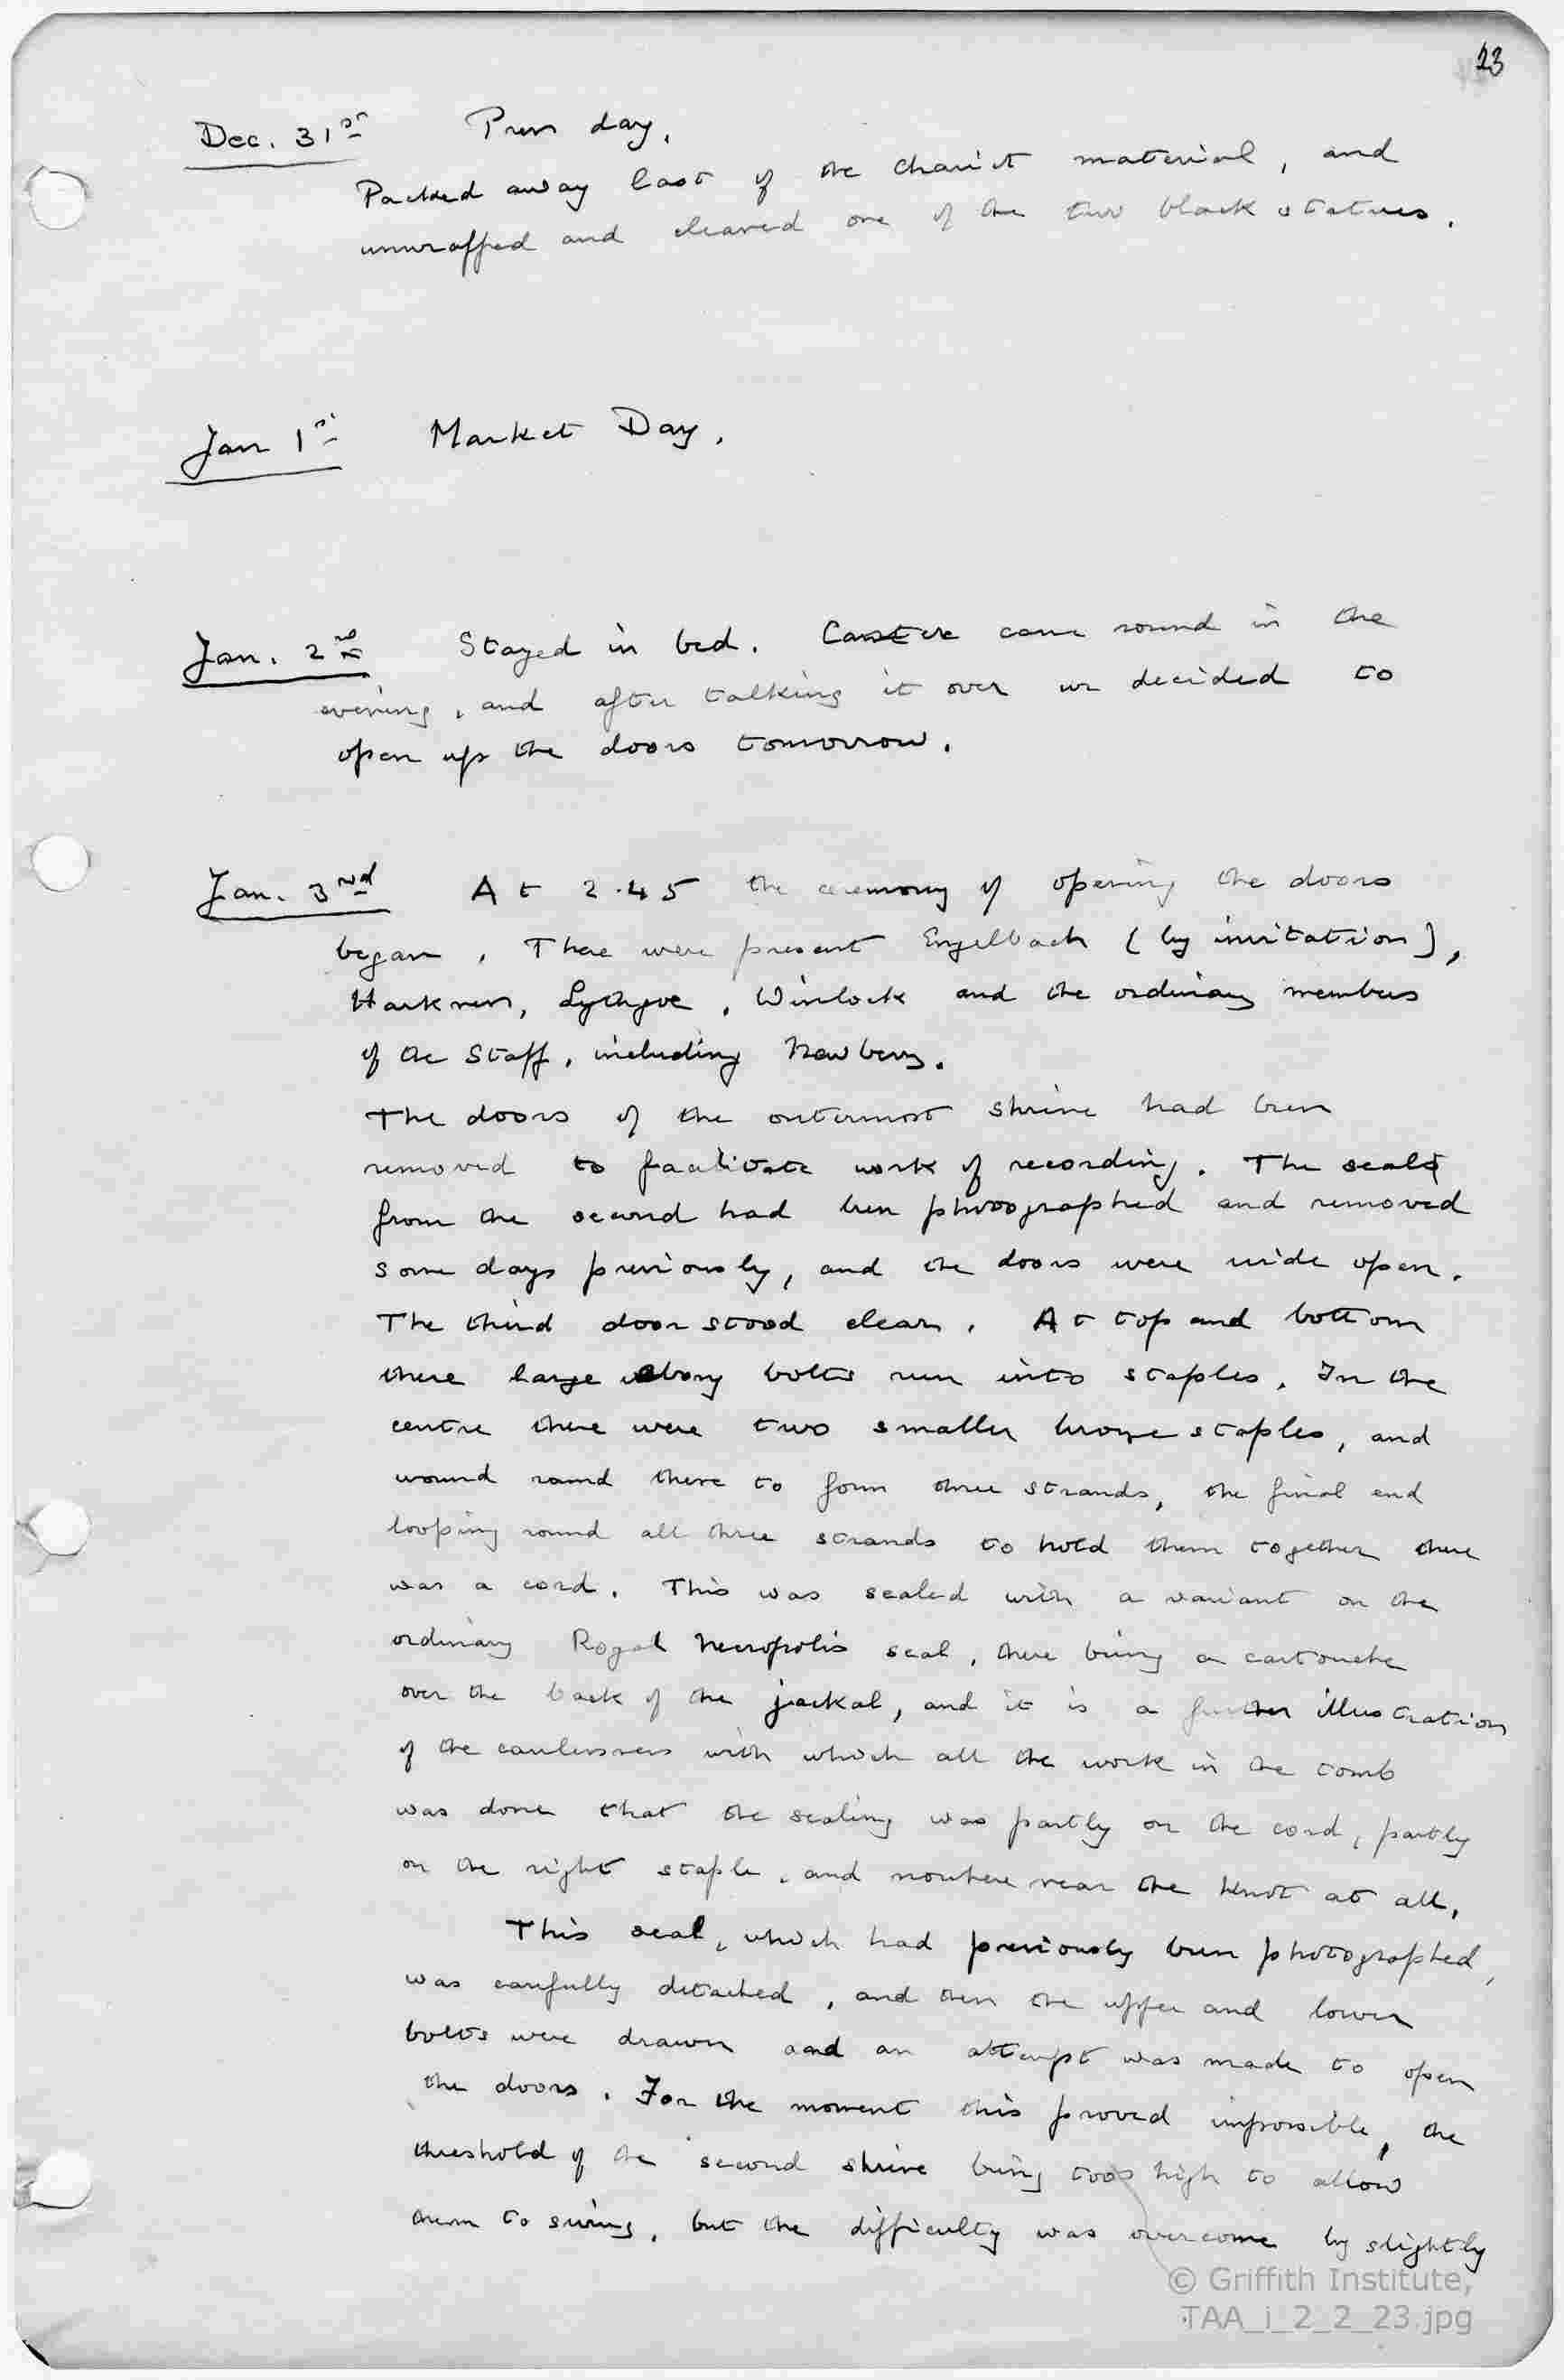 23
Dec. 31st Press day.
Packed away last of the chariot material, and
unwrapped and cleaned one of the two black statues.
Jan 1st Market Day.
Jan. 2nd Stayed in bed. Carter came round in the
evening, and after talking it over we decided to
open up the doors tomorrow.
Jan. 3rd At 2.45 the ceremony of opening the doors
began. There were present Engelbach (by invitation),
Harkness, Lythgoe, Winlock and the ordinary members
of the Staff, including Newberry.
The doors of the outermost shrine had been
removed to facilitate work of recording. The seals
from the second had been photographed and removed
some days previously, and the doors were wide open.
The third door stood clear. At top and bottom
there large ebony bolts run into staples. In the
centre there were two smaller bronze staples, and
wound round there to form three strands, the final end
looping round all three strands to hold them together there
was a cord. This was sealed with a variant on the
ordinary Royal Necropolis seal, there being a cartouche
over the back of the jackal, and it is a further illustration
of the carelessness with which all the work in the tomb
was done that the sealing was partly on the cord, partly
on the right staple, and nowhere near the knot at all.
This seal, which had previously been photographed,
was carefully detached, and then the upper and lower
bolts were drawn and an attempt was made to open
the doors. For the moment this proved impossible, the
threshold of the second shrine being too high to allow
them to swing, but the difficulty was overcome by slightly
© Griffith Institute,
TAA_i_2_2_23.jpg